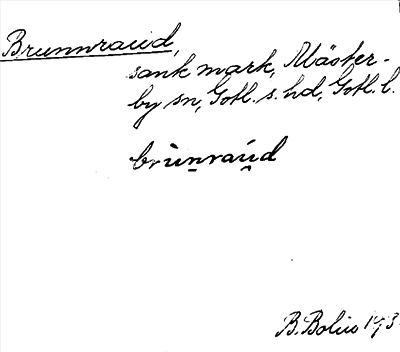 Brunnraud,
sank mark, Mäster-
by sn, Gotl. s. hd, Gotl. l.
brùn̲raúd
B. Bolin 193